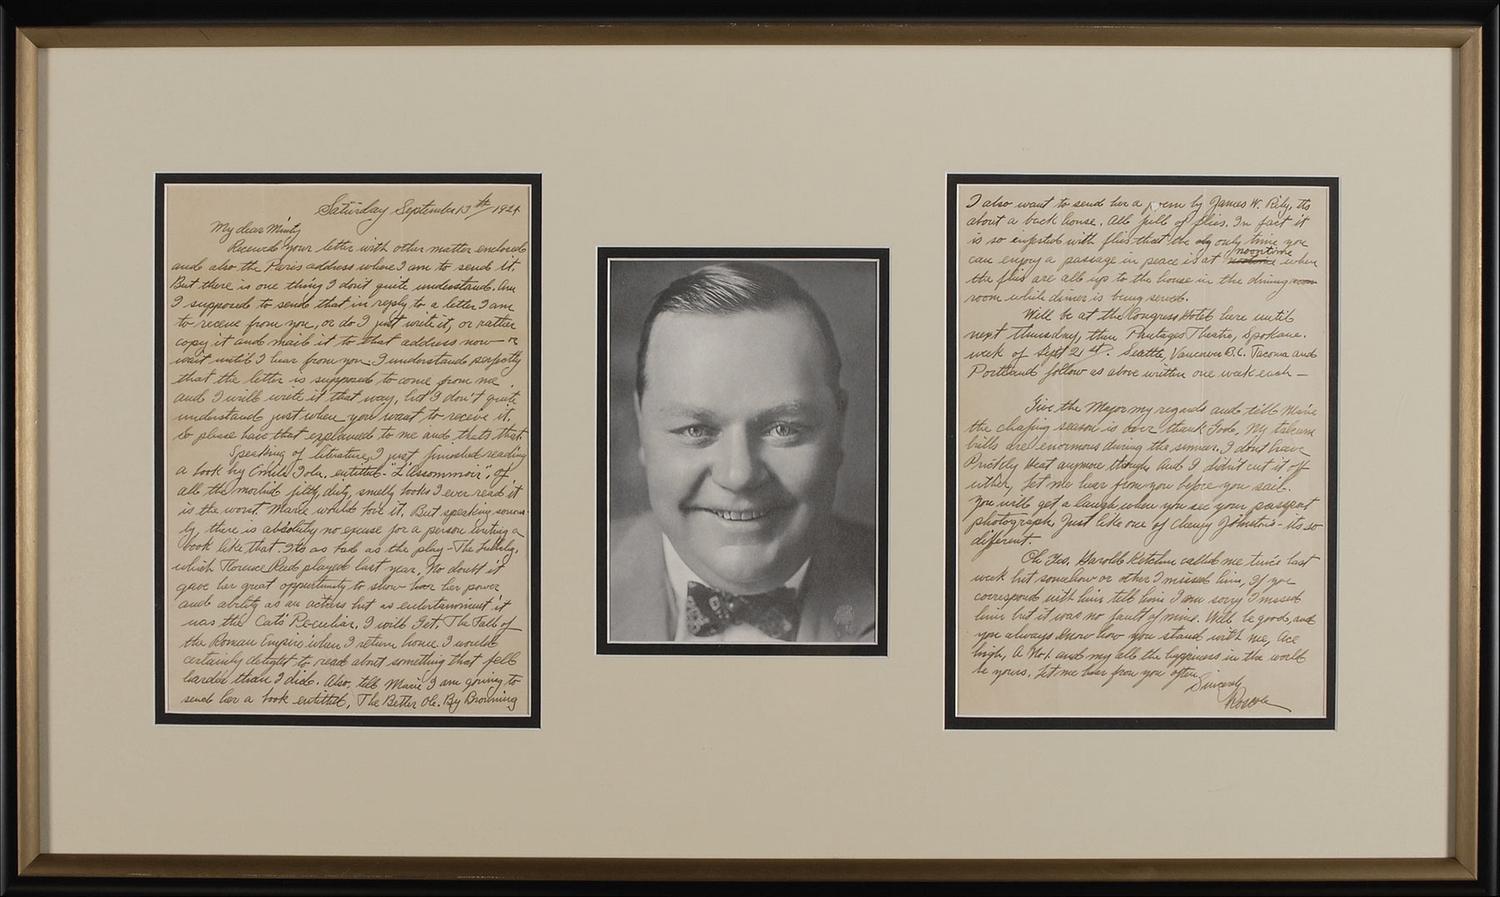 Saturday September 13th/1924
My dear Minty
Received your letter with other matter enclosed
and also the Paris address where I am to send it.
But there is one thing I don't quite understand. Am
I supposed to send that in reply to a letter I am
to receive from you, or do I just write it, or rather
copy it and mail it to that address now - or
wait until I hear from you. I understand perfectly
that the letter is supposed to come from me
and I will write it that way, but I don't quite
understand just when you want to receive it.
So please have that explained to me and thats that.
Speaking of literature, I just finished reading
a book by Emile Zola, entitled "L'Assommoir", of
all the morbid filthy, dirty, smelly books I ever read it
is the worst Marie would love it. But speaking serious-
ly, there is absolutely no excuse for a person writing a
book like that. Its as bad as the play - The
which Florence Reed played last year. No doubt it
gave her great opportunity to show her power
and ability as an actress but as entertainment it
was the Cats Peculiar. I will get The Fall of
the Roman Empire when I return home. I would
certainly delight to read about something that fell
harder than I did. Also, tell Marie I am going to
send her a book entitled, The Better Ole. By Browning
I also want to send her a poem by James W. Rily, its
about a back house. All full of flies. In fact it
is so infested with flies that the only time you
can enjoy a passage in peace is at noontime when
the flies are all up to the house in the dining room
room while diner is being served.
Will be at the Congress Hotel here until
next Thursday, then Pantages Theatre, Spokane.
week of Sept 21st. Seattle, Vancouver B.C. Tacoma and
Portland follow as above written one week each -
Give the Major my regards and tell Marie
the chafing season is over thank God, My talcum
bills are enormous during the summer. I dont have
Prickly heat anymore though, and I didn't cut it off
either, let me hear from you before you sail.
You will get a laugh when you see your passport
photograph, Just like one of Johnston's - its so
different.
Oh Yes, Harold called me twice last
week but somehow or other I missed him, If you
correspond with him tell him I am sorry I missed
him but it was no fault of mine. Well be good, and
you always know how you stand with me, ace
high, A No.1. and my all the happiness in the world
be yours, let me hear from you often.
Sincerely
Roscoe